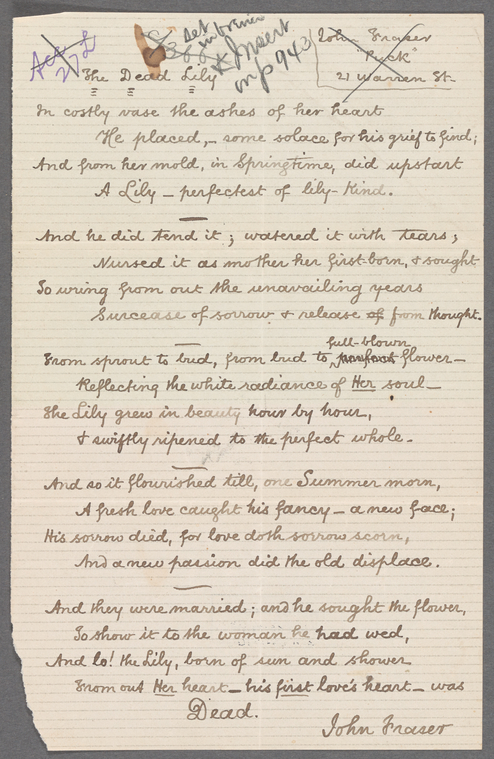 Act
27 L
Set
in brevier
Insert
on p 943
John Fraser
"Puck"
21 Warren St.
The Dead Lily
In costly vase the ashes of her heart
He placed,—some solace for his grief to find;
And from her mold, in Springtime, did upstart
A Lily—perfectest of lily-kind.
And he did tend it; watered it with tears;
Nursed it as mother her first-born, & sought
To wring from out the unavailing years
Surcease of sorrow & release of from thought.
full-blown
From sprout to bud, from bud to flower—
Reflecting the white radiance of Her soul—
The Lily grew in beauty hour by hour,
& swiftly ripened to the perfect whole.
And so it flourished till, one Summer morn,
A fresh love caught his fancy—a new face;
His sorrow died, for love doth sorrow scorn,
And a new passion did the old displace.
And they were married; and he sought the flower,
To show it to the woman he had wed,
And lo! the Lily, born of sun and shower
From out Her heart—his first love's heart—was
Dead.
John Fraser